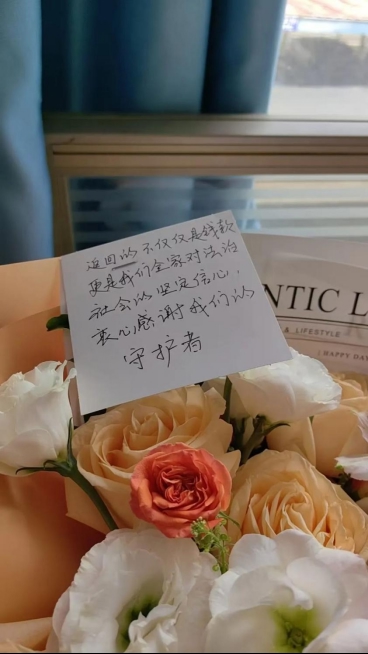 追回的不仅仅是钱款
更是我们全家对法治
社会的坚定信心,
衷心感谢我们的
守护者
NTIC L
A LIFESTYLE
HAPPY DAY